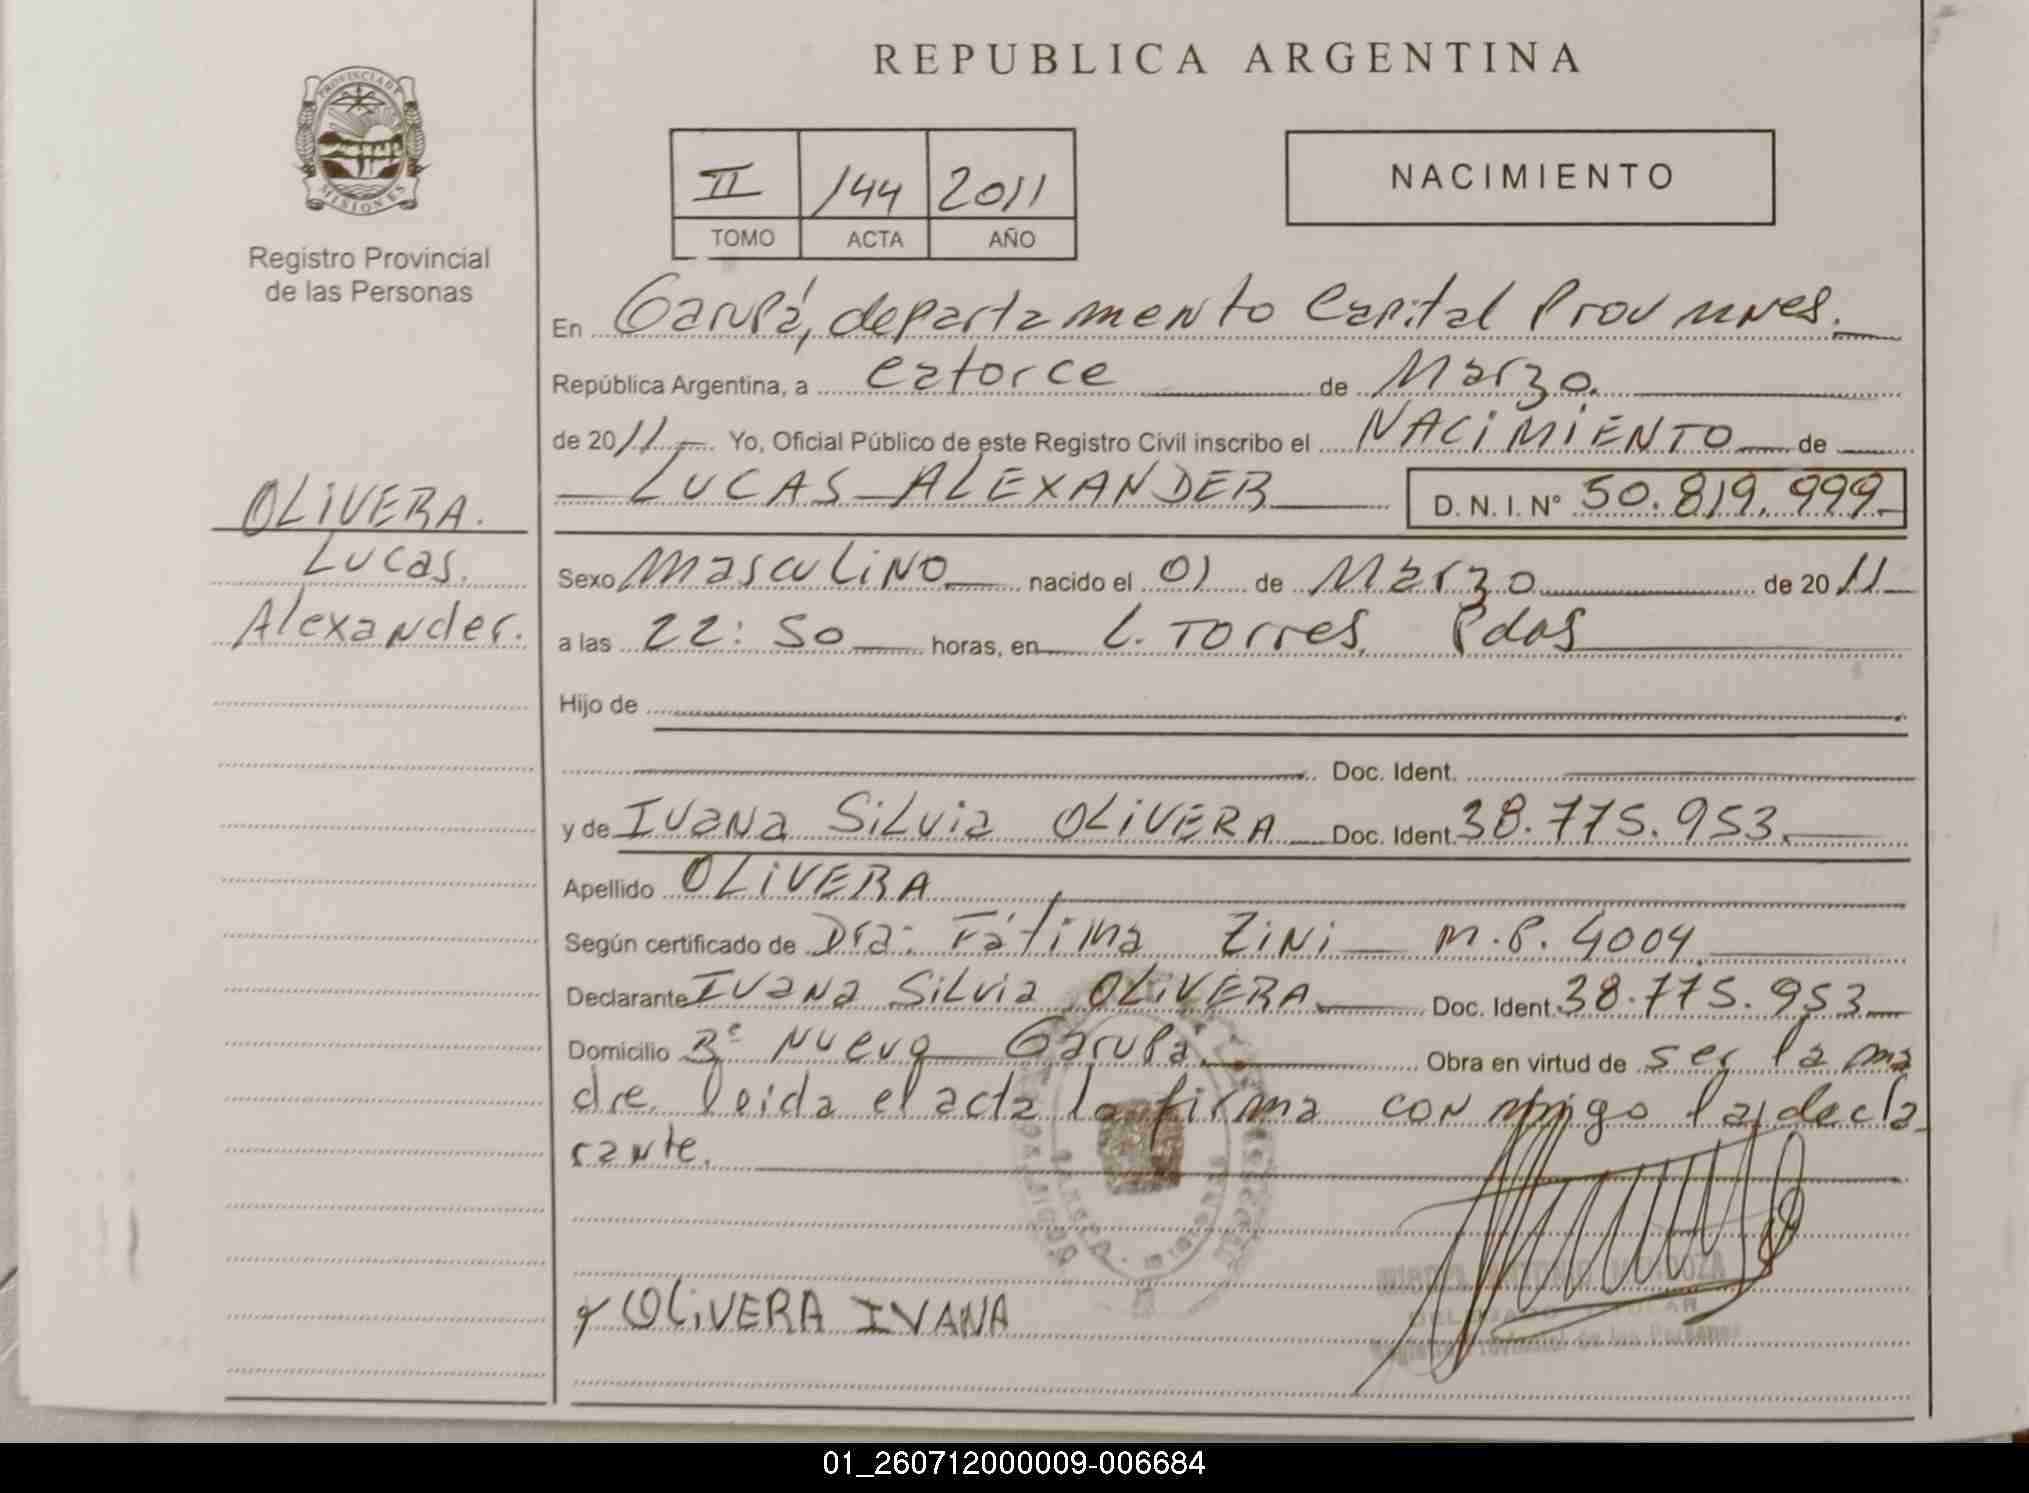 REPUBLICA ARGENTINA
PROVINCIA DE
MISIONES
Registro Provincial
de las Personas
II 144 2011
TOMO ACTA AÑO
NACIMIENTO
En Garupá, departamento Capital Prov
República Argentina, a catorce de Marzo.
de 2011 Yo, Oficial Público de este Registro Civil inscribo el NACIMIENTO de
LUCAS ALEXANDER D. N. I. Nº 50.819.999
OLIVERA.
Lucas.
Alexander.
Sexo Masculino nacido el 01 de Marzo de 2011
a las 22:50 horas, en L. Torres. Pdas
Hijo de
Doc. Ident.
y de Ivana Silvia OLIVERA Doc. Ident. 38.775.953.
Apellido OLIVERA
Según certificado de Dra: Fátima Zini M.P. 4004
Declarante Ivana Silvia OLIVERA Doc. Ident. 38.775.953
Domicilio Bº Nueva Garupa Obra en virtud de ser la ma
dre. leida el acta la firma conmigo la decla
rante.
OLIVERA IVANA
01_260712000009-006684